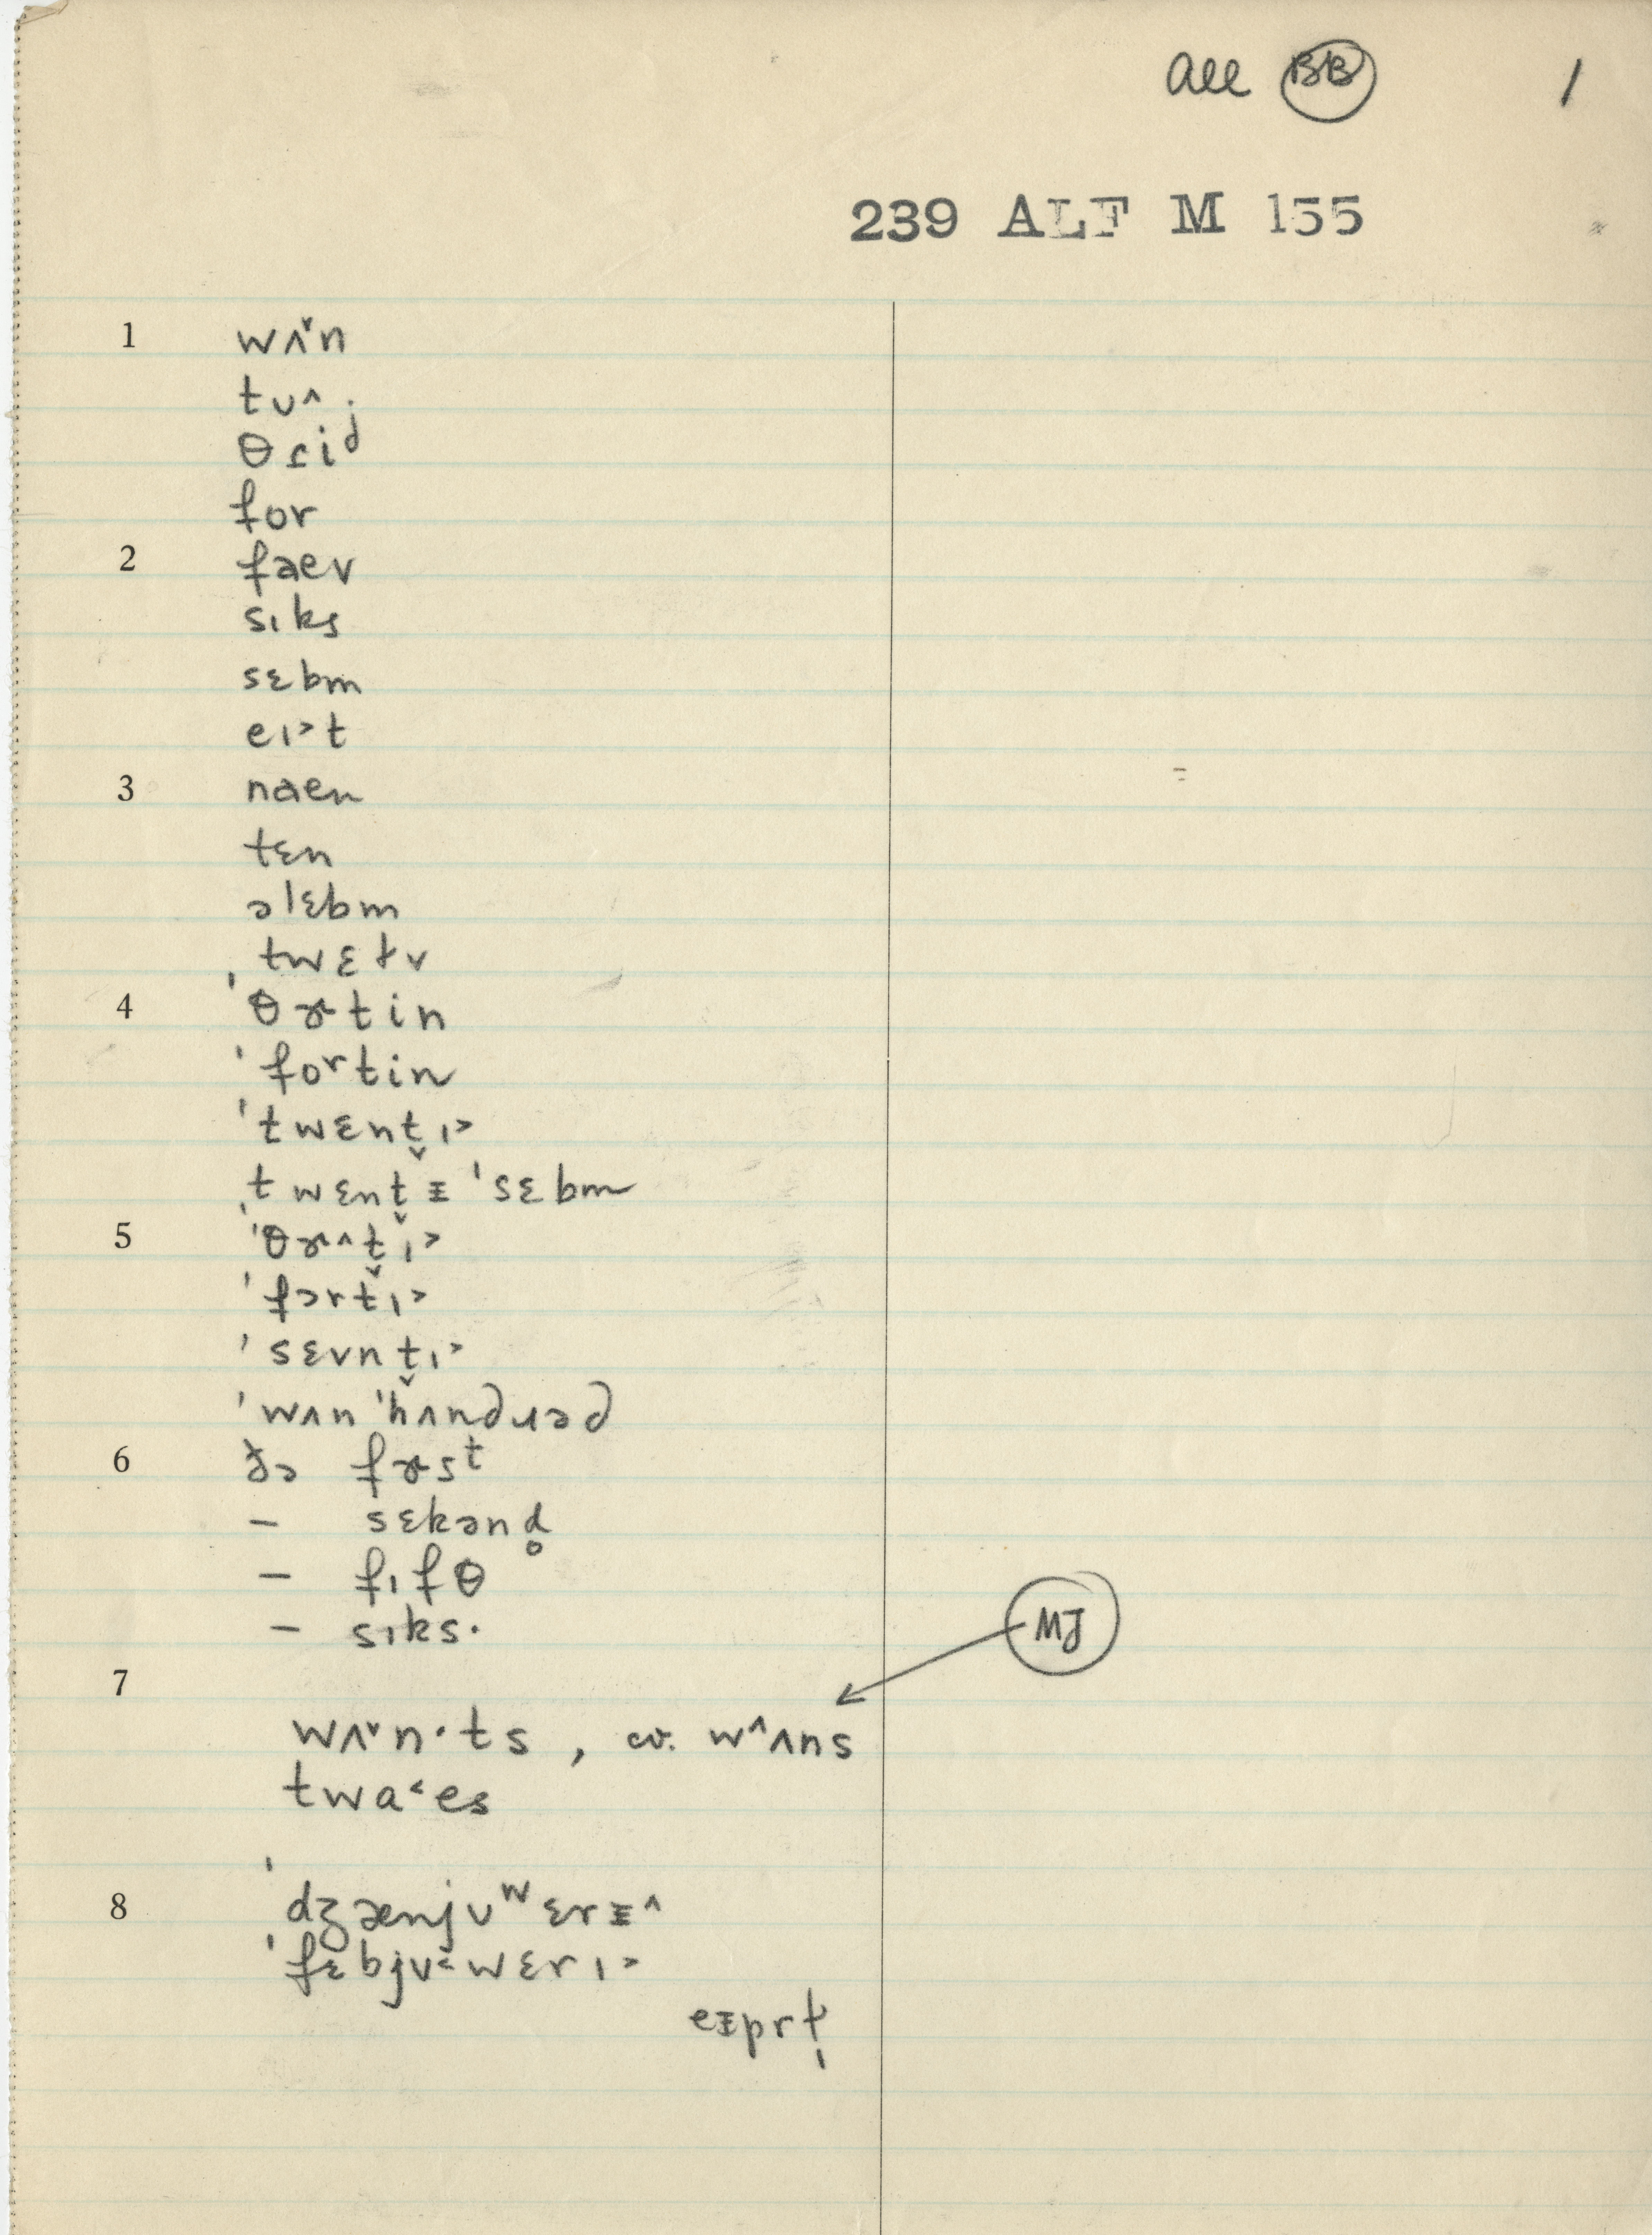 all BB 1
239 ALF M 155
1 wʌ˅n
tʊ˄
θɾiʲ
for
2 faev
sɪks
sɛbm
eɪ˃t
3 naen
tɛn
əlɛbm
ˌtwɛɫv
4 ˈθɚtin
ˈfoʳtin
ˈtwɛnt̬ɪ˃
ˌtwɛnt̬ᵻ ˈsɛbm
5 ˈθɚ˄t̬ɪ˃
ˈfɔrt̬ɪ˃
ˈsɛvnt̬ɪ˃
ˈwʌn ˈhʌndɹəd
6 ðə fɚsᵗ
— sɛkənd̥
— fɪfθ
— sɪks·
7
MJ
wʌ˅n·ts , cv. w˄ʌns
twa˂es
8 ˈdʒænjʊʷɛrᵻ˄
ˈfɛbjʊ˂wɛrɪ˃
eᵻprɫ̩